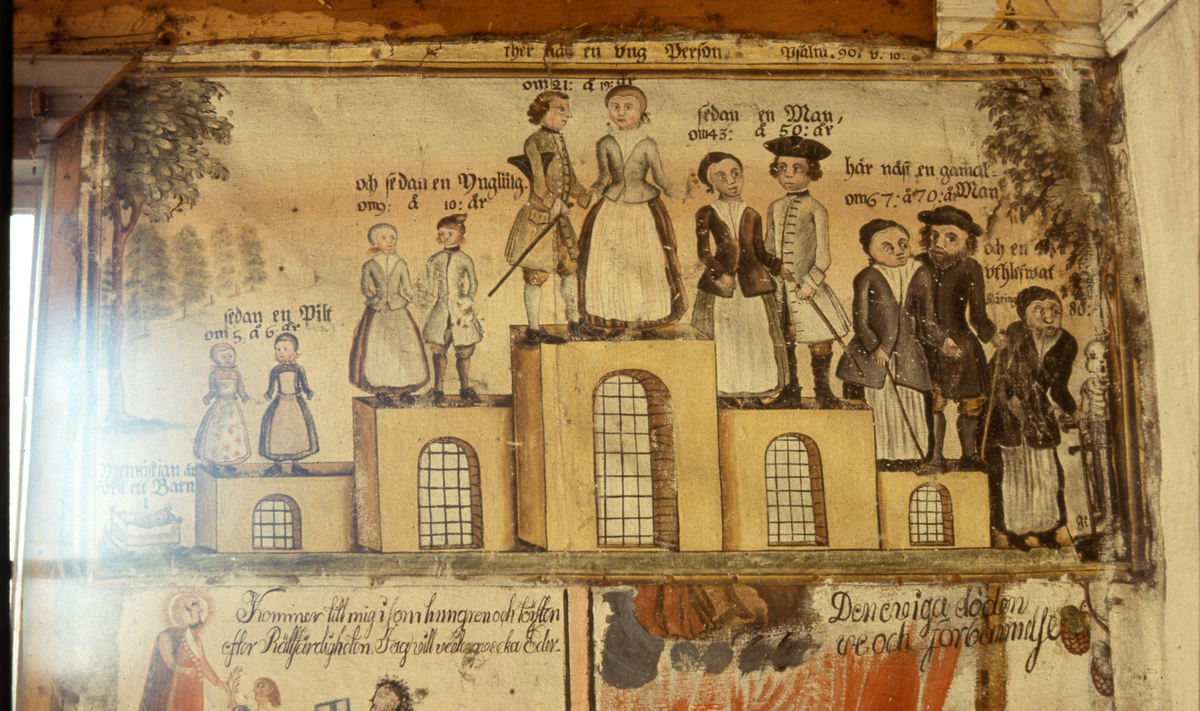 ther näst en Ung Person Psalm. 90: v. 10.
om 21: å 19: år
sedan en Man,
om 43: å 50: år
och sedan en Yngling.
om 9: å 10: år
här näst en gamal=
om 67: å 70: år Man
och en
80:
sedan en Pilt
om 5. å 6. år
Menniskian är
först ett Barn
1
Kommer till mig i som hungren och törsten
efter Rättfärdigheten, Jag vill vederqvecka Eder.
Den eviga döden
ve och förbannelse